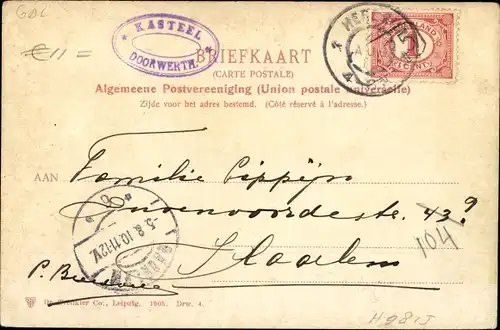 GDL
€ 11 =
* KASTEEL *
DOORWERTH.
BRIEFKAART
(CARTE POSTALE)
Algemeene Postvereeniging (Union postale universelle)
Zijde voor het adres bestemd. (Côté réservé à l'adresse.)
AAN Familie Pippijn
43 9
104
Haarlem
-5.8.10.11-12V.
Dr. Trenkler Co., Leipzig. 1905. Drw. 4.
H9815